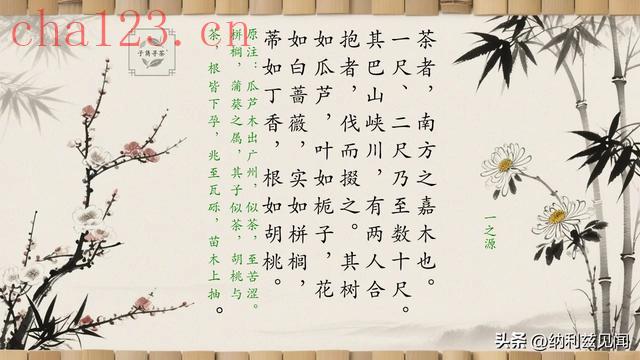 一之源
茶者，南方之嘉木也。
一尺、二尺乃至数十尺。
其巴山峡川，有两人合
抱者，伐而掇之。其树
如瓜芦，叶如栀子，花
如白蔷薇，实如栟榈，
蒂如丁香，根如胡桃。
原注：瓜芦木出广州，似茶，至苦涩。
栟榈，蒲葵之属，其子似茶，胡桃与
茶，根皆下孕，兆至瓦砾，苗木上抽。
子隽寻茶
cha123.cn
头条 @纳利兹见闻